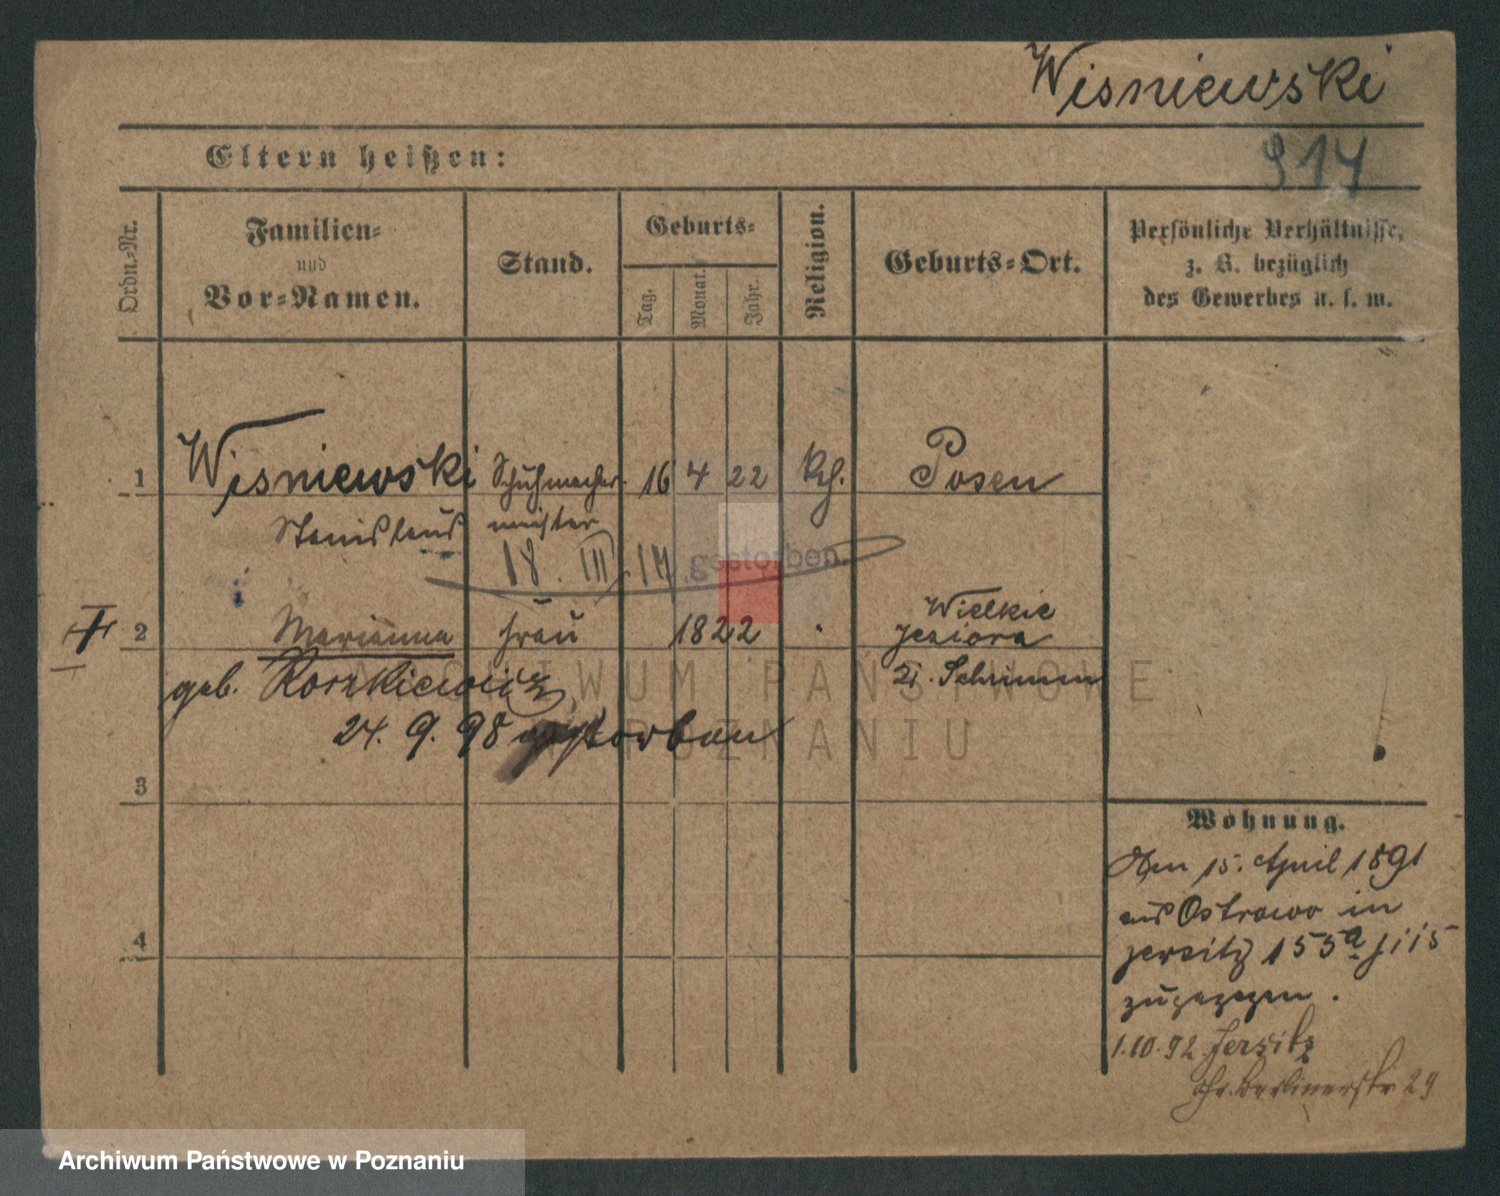 Wisniewski
914
Eltern heißen:
Ordn.-Nr.
Familien-
und
Vor-Namen.
Stand.
Geburts-
Tag.
Monat.
Jahr.
Religion.
Geburts-Ort.
Persönliche Verhältnisse,
z. B. bezüglich
des Gewerbes u. s. w.
1 Wisniewski Schuhmacher 16 4 22 kth. Posen
Stanislaus meister
18. III. 14 gestorben.
2 Marianna Frau 1822 " Wielkie
Jeziora
geb. Roszkiewicz Schrimm
24. 9. 98 gestorben
3
4
Wohnung.
Den 15. April 1891
aus Ostrowo in
Jersitz 155a
zugezogen.
1.10.92 Jersitz
Gr. Berlinerstr 29
ARCHIWUM PAŃSTWOWE
W POZNANIU
Archiwum Państwowe w Poznaniu